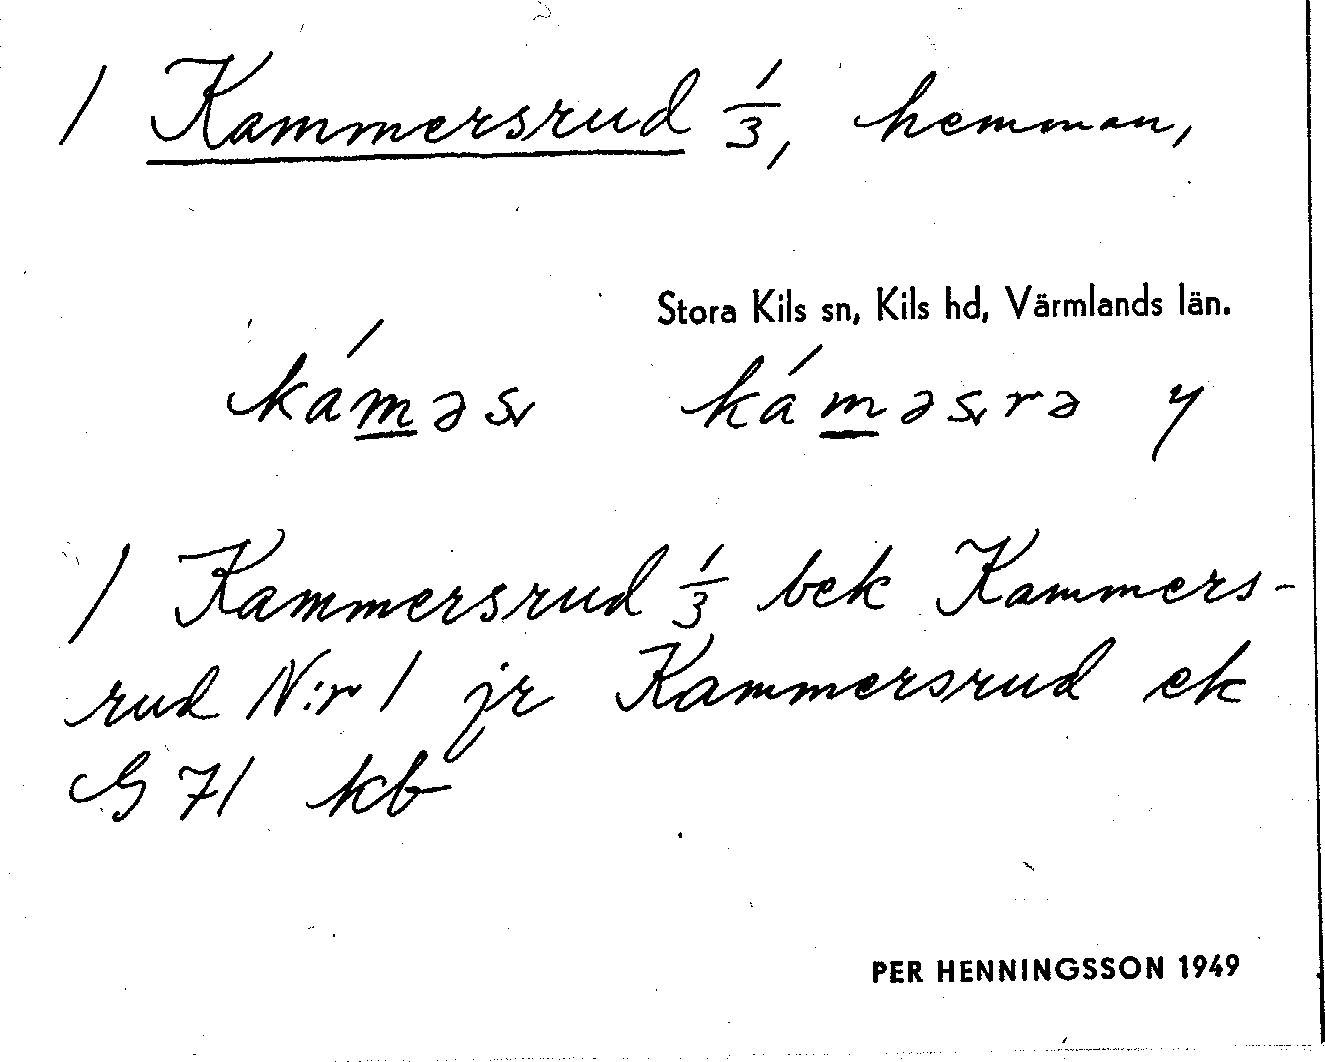 1 Kammersrud 1/3, hemman,
Stora Kils sn, Kils hd, Värmlands län.
káməsv káməsvrə y
1 Kammersrud 1/3 bek Kammers-
rud N:r 1 jr Kammersrud ek
G 71 kb
PER HENNINGSSON 1949